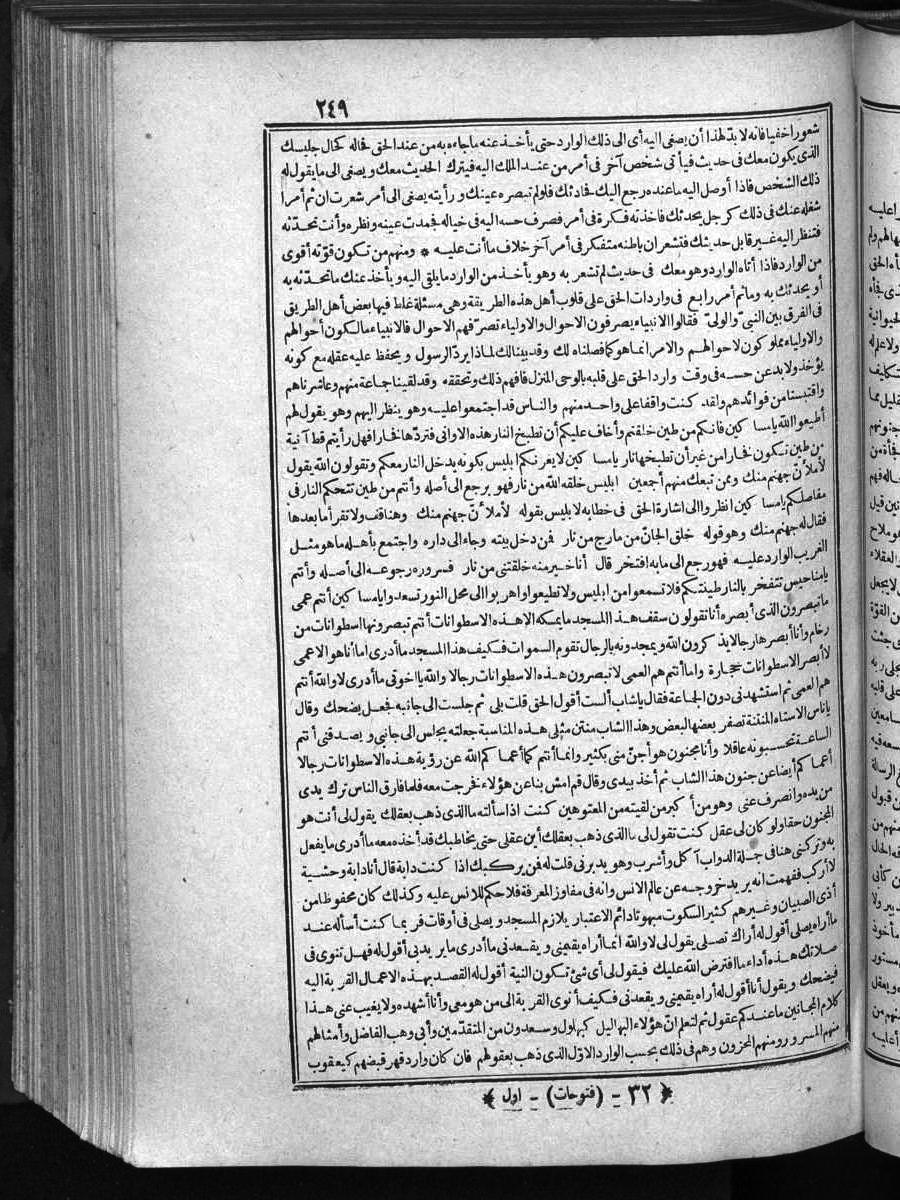 ٢٤٩
شعورا خفيا فانه لا بدّ لهذا أن يصغى اليه أى الى ذلك الوارد حتى يأخذ عنه ما جاءه به من عند الحق فحاله كحال جليسك
الذى يكون معك فى حديث فيأتى شخص آخر فى أمر من عند الملك اليه فيترك الحديث معك ويصغى الى ما يقول له
ذلك الشخص فاذا أوصل اليه ما عنده رجع اليك فحادثك فلو لم تبصره عينك ورأيته يصغى الى أمر شعرت ان ثم أمرا
شغله عنك فى ذلك كرجل يحدثك فاخذته فكرة فى أمر فصرف حسه اليه فى خياله فجمدت عينه ونظره وأنت تحدّثه
فتنظر اليه غير قابل حديثك فتشعر ان باطنه متفكر فى أمر آخر خلاف ما أنت عليه * ومنهم من تكون قوّته أقوى
من الوارد فاذا أتاه الوارد وهو معك فى حديث لم تشعر به وهو يأخذ من الوارد ما يلقى اليه ويأخذ عنك ما تحدّثه به
أو يحدثك به وما ثم أمر رابع فى واردات الحق على قلوب أهل هذه الطريقة وهى مسئلة غلط فيها بعض أهل الطريق
فى الفرق بين النبىّ والولىّ فقالوا الانبياء يصرفون الاحوال والاولياء تصرّفهم الاحوال فالانبياء مالكون أحوالهم
والاولياء مملوكون لاحوالهم والامر انما هو كما فصلناه لك وقد بينا لك لماذا يردّ الرسول ويحفظ عليه عقله مع كونه
يؤخذ ولا بد عن حسه فى وقت وارد الحق على قلبه بالوحى المنزل فافهم ذلك وتحققه وقد لقينا جماعة منهم وعاشرناهم
واقتبسنا من فوائدهم ولقد كنت واقفا على واحد منهم والناس قد اجتمعوا عليه وهو ينظر اليهم وهو يقول لهم
أطيعوا الله يا مساكين فانكم من طين خلقتم وأخاف عليكم أن تطبخ النار هذه الاوانى فتردّها فخارا فهل رأيتم قط آنية
من طين تكون فخارا من غير أن تطبخها نار يا مساكين لا يغرنكم ابليس بكونه يدخل النار معكم وتقولون الله يقول
لأملأنّ جهنم منك وممن تبعك منهم أجمعين ابليس خلقه الله من نار فهو يرجع الى أصله وأنتم من طين تتحكم النار فى
مفاصلكم يا مساكين انظروا الى اشارة الحق فى خطابه لابليس بقوله لأملأنّ جهنم منك وهنا قف ولا تقرأ ما بعدها
فقال له جهنم منك وهو قوله خلق الجانّ من مارج من نار فمن دخل بيته وجاء الى داره واجتمع بأهله ما هو مثل
الغريب الوارد عليه فهو رجع الى ما به افتخر قال أنا خير منه خلقتنى من نار فسروره رجوعه الى أصله وأنتم
يا مناحيس تتفخر بالنار طينتكم فلا تسمعوا من ابليس ولا تطيعوا واهربوا الى محل النور تسعدوا يا مساكين أنتم عمى
ما تبصرون الذى أبصره أنا تقولون سقف هذا المسجد ما يمسكه الا هذه الاسطوانات أنتم تبصرونها اسطوانات من
رخام وأنا أبصرها رجالا يذكرون الله ويمجدونه بالرجال تقوم السموات فكيف هذا المسجد ما أدرى اما أنا هو الاعمى
لا أبصر الاسطوانات حجارة واما أنتم هم العمى لا تبصرون هذه الاسطوانات رجالا والله يا اخوتى ما أدرى لا والله أنتم
هم العمى ثم استشهدنى دون الجماعة فقال يا شاب ألست أقول الحق قلت بلى ثم جلست الى جانبه فجعل يضحك وقال
يا ناس الاستاه المنتنة تصفر بعضها لبعض وهذا الشاب منتن مثلى هذه المناسبة جعلته يجلس الى جانبى ويصدقنى أنتم
الساعة تحسبونه عاقلا وأنا مجنون هو أجنّ منى بكثير وانما أنتم كما أعماكم الله عن رؤية هذه الاسطوانات رجالا
أعماكم أيضا عن جنون هذا الشاب ثم أخذ بيدى وقال قم امش بنا عن هؤلاء فخرجت معه فلما فارق الناس ترك يدى
من يده وانصرف عنى وهو من أكبر من لقيته من المعتوهين كنت اذا سألته ما الذى ذهب بعقلك يقول لى أنت هو
المجنون حقا ولو كان لى عقل كنت تقول لى ما الذى ذهب بعقلك أين عقلى حتى يخاطبك قد أخذه معه ما أدرى ما يفعل
به وتركنى هنا فى جملة الدواب آكل وأشرب وهو يدبرنى قلت له فمن يركبك اذا كنت دابة قال أنا دابة وحشية
لا أركب ففهمت انه يريد خروجه عن عالم الانس وانه فى مفاوز المعرفة فلا حكم للانس عليه وكذلك كان محفوظا من
أذى الصبيان وغيرهم كثير السكوت مبهوتا دائم الاعتبار يلازم المسجد ويصلى فى أوقات فربما كنت أسأله عند
ما أراه يصلى أقول له أراك تصلى يقول لى لا والله انما أراه يقيمنى ويقعدنى ما أدرى ما يريد بى أقول له فهل تنوى فى
صلاتك هذه أداء ما افترض الله عليك فيقول لى أى شئ تكون النية أقول له القصد بهذه الاعمال القربة اليه
فيضحك ويقول أنا أقول له أراه يقيمنى ويقعدنى فكيف أنوى القربة الى من هو معى وأنا أشهده ولا يغيب عنى هذا
كلام المجانين ما عندكم عقول ثم لتعلم انّ هؤلاء البهاليل كبهلول وسعدون من المتقدّمين وأبى وهب الفاضل وأمثالهم
منهم المسرور ومنهم المحزون وهم فى ذلك بحسب الوارد الاوّل الذى ذهب بعقولهم فان كان وارد قهر قبضهم كيعقوب
﴿ ٣٢ - (فتوحات) - اول ﴾